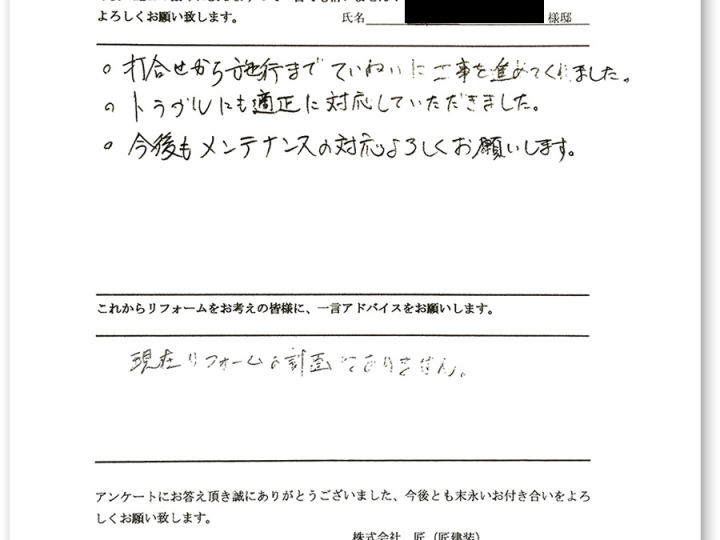 よろしくお願い致します。 氏名 様邸
○ 打合せから施行まで ていねいに工事を進めてくれました。
○ トラブルにも適正に対応していただきました。
○ 今後もメンテナンスの対応よろしくお願いします。
これからリフォームをお考えの皆様に、一言アドバイスをお願いします。
現在リフォームの計画はありません。
アンケートにお答え頂き誠にありがとうございました、今後とも末永いお付き合いをよろ
しくお願い致します。
株式会社 匠（匠建装）